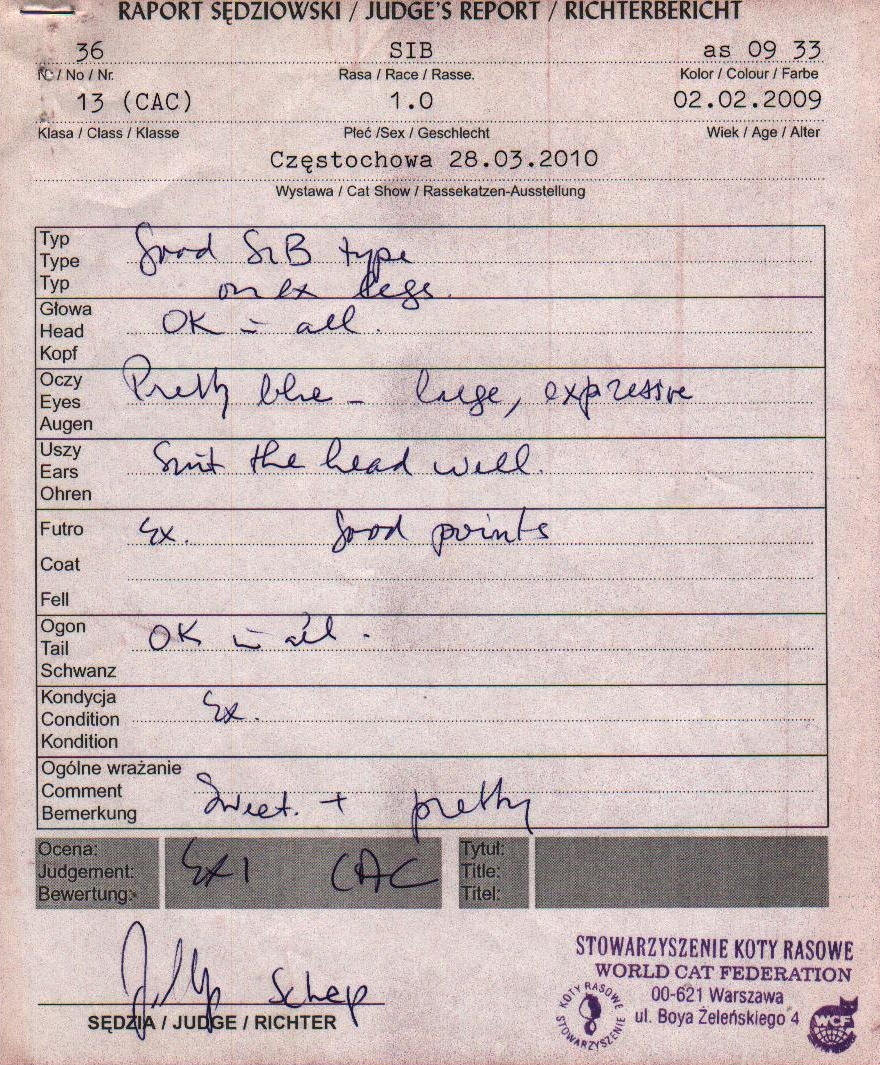 RAPORT SĘDZIOWSKI / JUDGE'S REPORT / RICHTERBERICHT
36 SIB as 09 33
Nr / No / Nr. Rasa / Race / Rasse. Kolor / Colour / Farbe
13 (CAC) 1.0 02.02.2009
Klasa / Class / Klasse Płeć /Sex / Geschlecht Wiek / Age / Alter
Częstochowa 28.03.2010
Wystawa / Cat Show / Rassekatzen-Ausstellung
Typ
Type
Typ
Good SIB type
on ex legs.
Głowa
Head
Kopf
OK in all.
Oczy
Eyes
Augen
Pretty blue - large, expressive
Uszy
Ears
Ohren
Suit the head well.
Futro
Coat
Fell
Ex. Good points
Ogon
Tail
Schwanz
OK in all.
Kondycja
Condition
Kondition
Ex.
Ogólne wrażanie
Comment
Bemerkung
Sweet. + pretty
Ocena:
Judgement:
Bewertung:
EX1 CAC
Tytuł:
Title:
Titel:
Schep
SĘDZIA / JUDGE / RICHTER
STOWARZYSZENIE KOTY RASOWE
WORLD CAT FEDERATION
00-621 Warszawa
ul. Boya Żeleńskiego 4
KOTY RASOWE
STOWARZYSZENIE
WCF